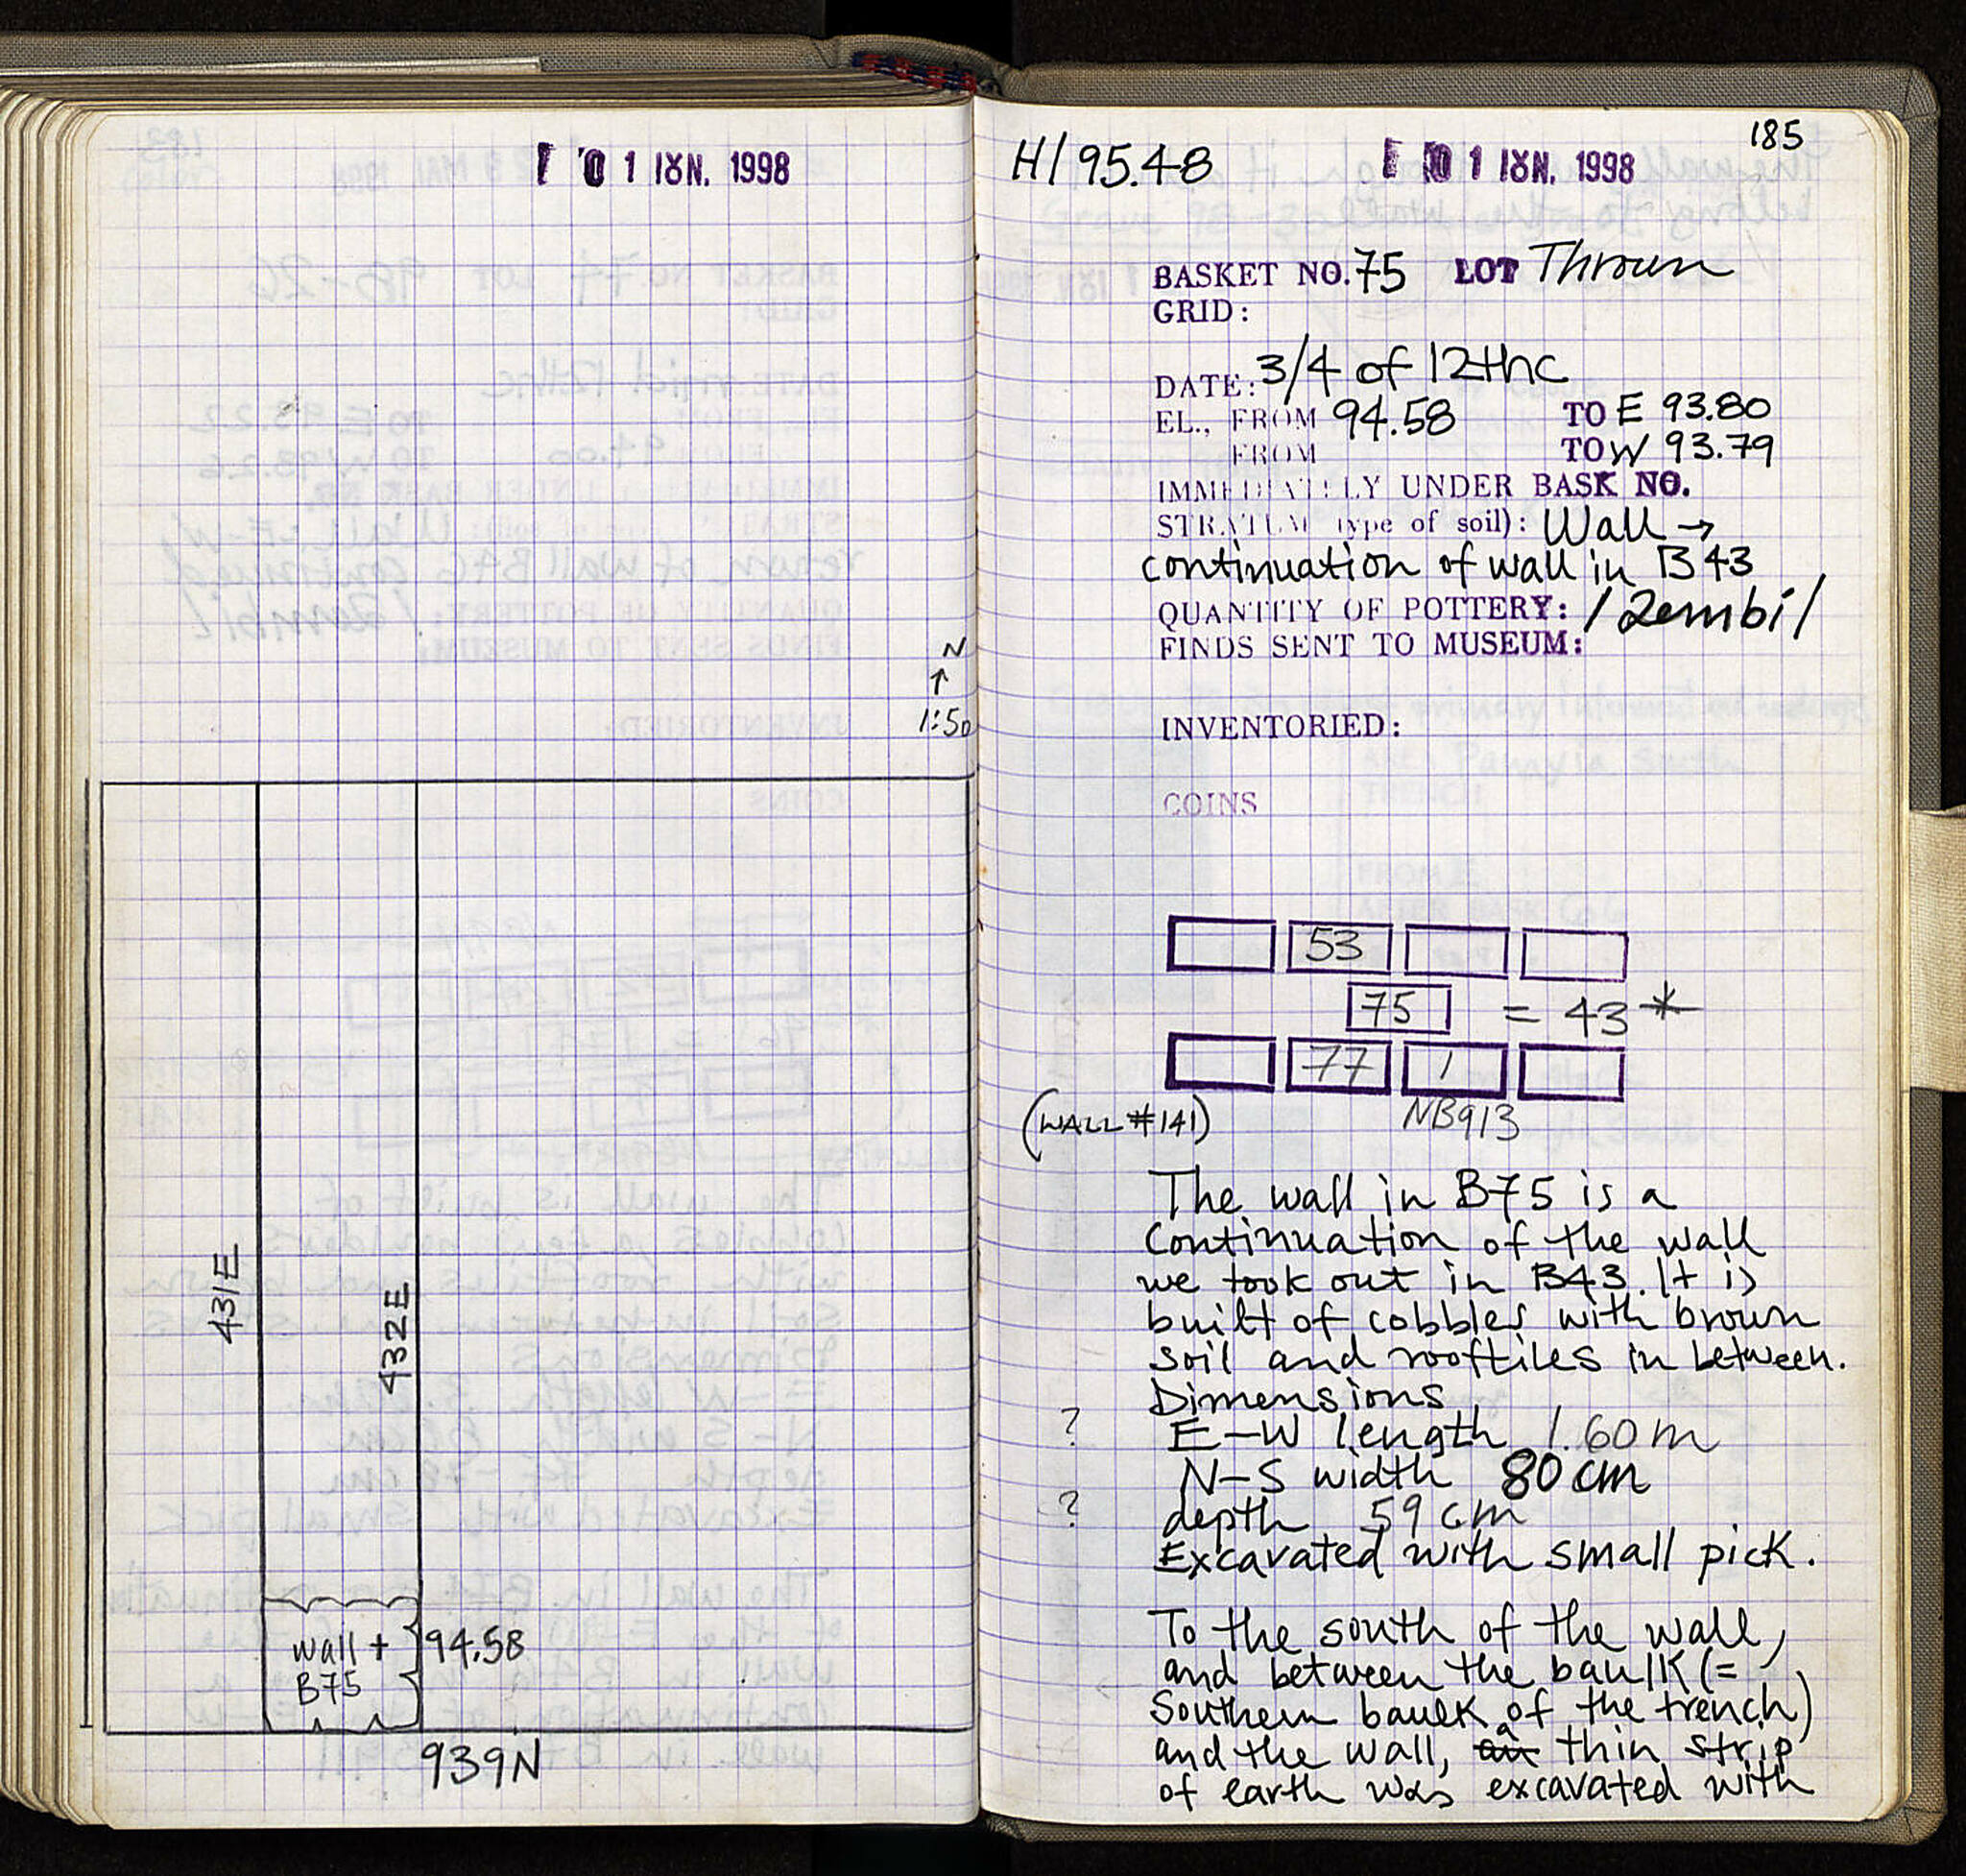 01 ΙΟΥΝ. 1998
N
↑
1:50
431E
432E
wall +
B75
94.58
939N
185
H/95.48
01 ΙΟΥΝ. 1998
BASKET NO. 75 LOT Thrown
GRID:
DATE: 3/4 of 12thc
EL., FROM 94.58 TO E 93.80
FROM TO W 93.79
IMMEDIATELY UNDER BASK NO.
STRATUM type of soil): Wall →
continuation of wall in B43
QUANTITY OF POTTERY: 1 zembil
FINDS SENT TO MUSEUM:
INVENTORIED:
COINS
53
75 = 43 *
77 1
(WALL #141) NB913
The wall in B75 is a
continuation of the wall
we took out in B43. It is
built of cobbles with brown
soil and rooftiles in between.
Dimensions
? E-W length 1.60 m
N-S width 80 cm
? depth 59 cm
Excavated with small pick.
To the south of the wall,
and between the baulk (=
Southern baulk of the trench)
and the wall, a thin strip
of earth was excavated with